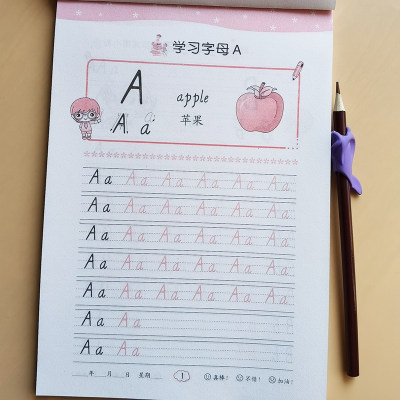 学习字母A
A
apple
A a
苹果
Aa Aa Aa Aa Aa Aa
Aa Aa Aa Aa Aa Aa
Aa Aa Aa Aa Aa Aa
Aa Aa Aa Aa Aa Aa
Aa Aa Aa Aa Aa Aa
Aa Aa
Aa Aa
年 月 日 星期 1 真棒! 不错! 加油!